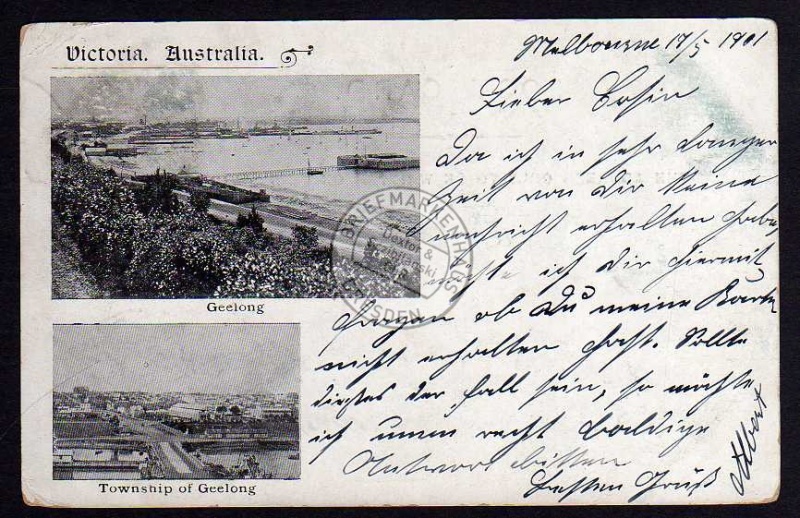 Victoria. Australia.
Melbourne 17/5 1901
Lieber Cosin
Da ich in sehr langer
Zeit von Dir keine
nachricht erhalten habe
ich Dir hiermit
fragen ob Du meine Karte
nicht erhalten hast. Sollte
dieses der fall sein, so möchte
ich um recht baldige
Antwort bitten
besten Gruß
Albert
Geelong
Township of Geelong
BRIEFMARKENHAUS
Dexter &
DRESDEN